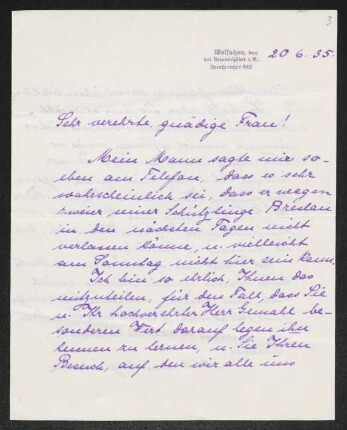 3
Wolfshau, den
bei Krummhübel i. R.
Fernsprecher 452
20.6.35.
Sehr verehrte, gnädige Frau!
Mein Mann sagte mir so-
eben am Telefon, dass es sehr
wahrscheinlich sei, dass er wegen
zweier seiner Schützlinge Breslau
in den nächsten Tagen nicht
verlassen könne, u. vielleicht
am Sonntag nicht hier sein kann.
Ich bin so ehrlich, Ihnen das
mitzuteilen, für den Fall, dass Sie
u. Ihr hochverehrter Herr Gemahl be-
sonderen Wert darauf legen ihn
kennen zu lernen, u. Sie Ihren
Besuch, auf den wir alle uns